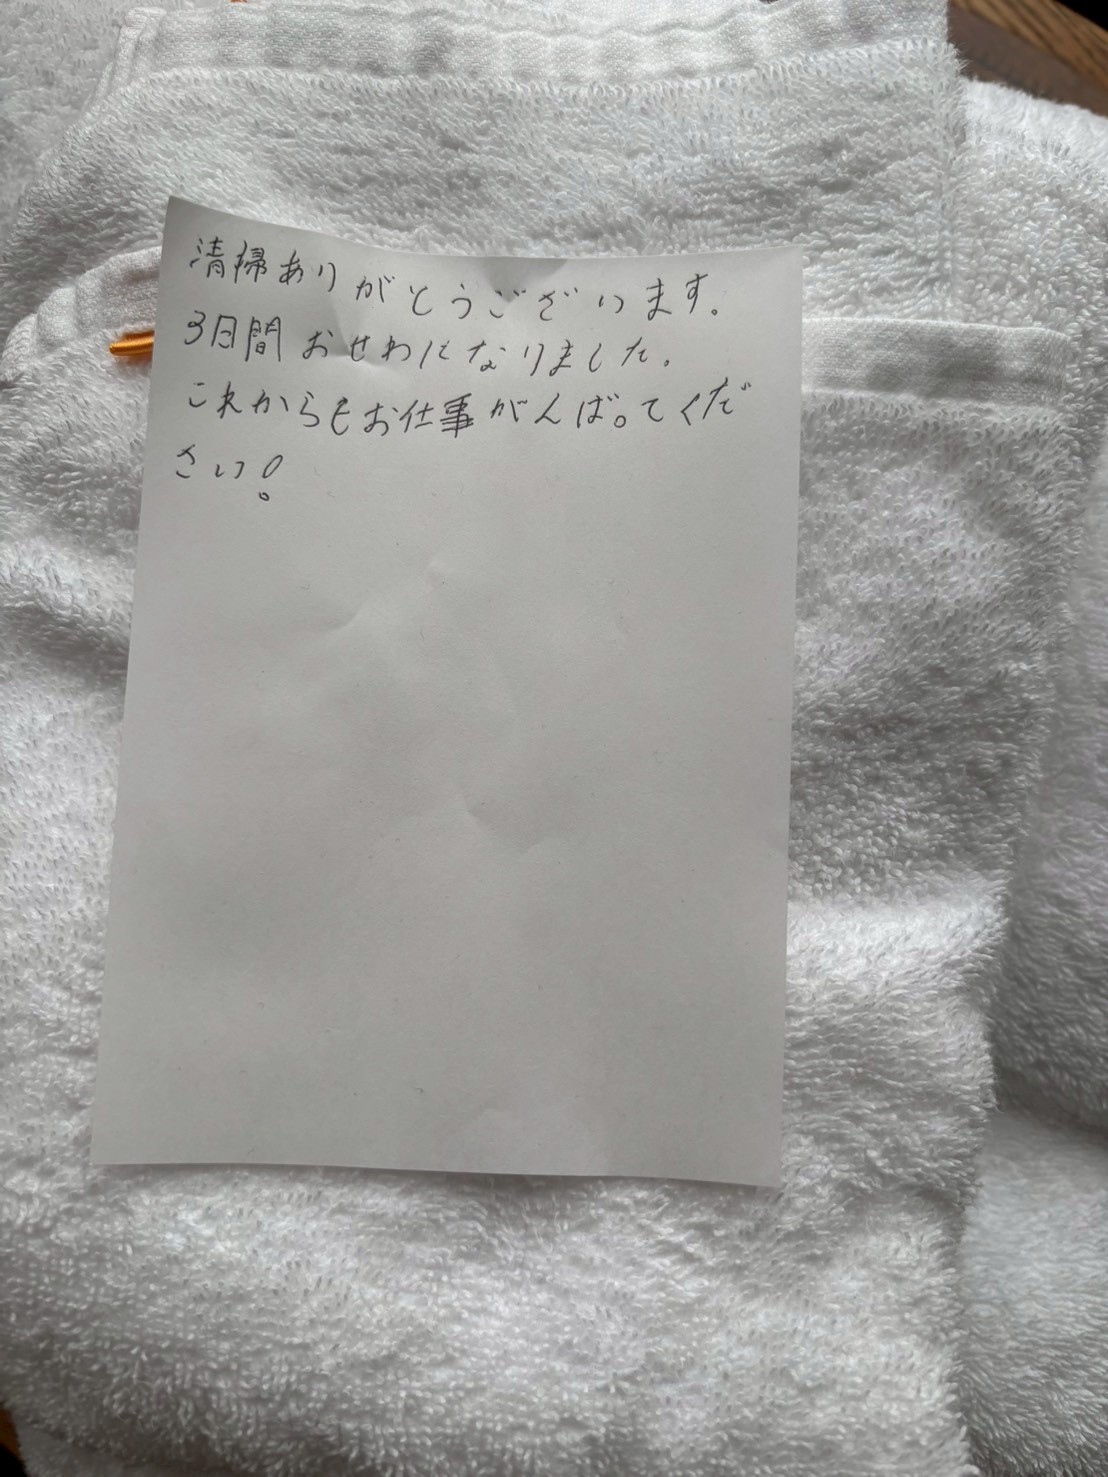 清掃ありがとうございます。
3日間おせわになりました。
これからもお仕事がんば。てくだ
さい!